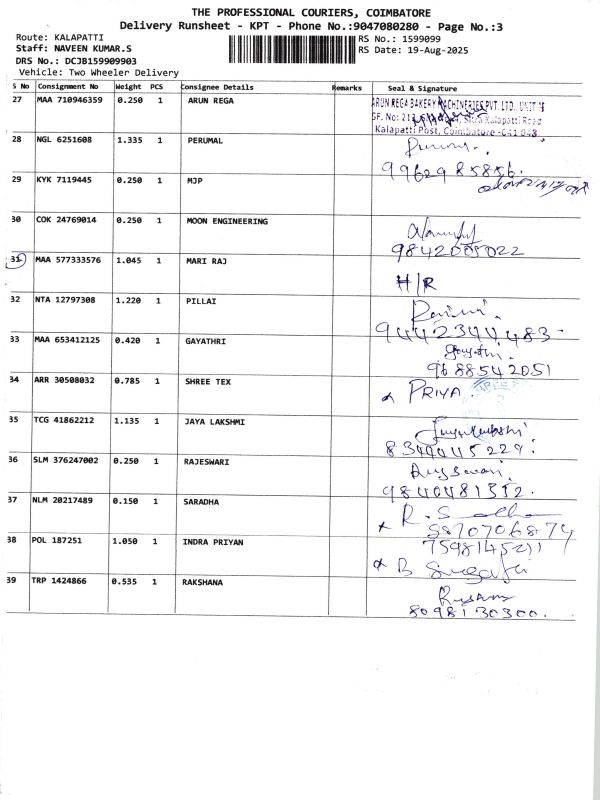 THE PROFESSIONAL COURIERS, COIMBATORE
Delivery Runsheet - KPT - Phone No.:9047080280 - Page No.:3
Route: KALAPATTI
RS No.: 1599099
Staff: NAVEEN KUMAR.S
RS Date: 19-Aug-2025
DRS No.: DCJB159909903
Vehicle: Two Wheeler Delivery
S No Consignment No Weight PCS Consignee Details Remarks Seal & Signature
27 MAA 710946359 0.250 1 ARUN REGA
ARUN REGA BAKERY MACHINERIES PVT. LTD., UNIT
Kalapatti Road
Kalapatti Post, Coimbatore -641 048.
28 NGL 6251608 1.335 1 PERUMAL
99629 85856.
29 KYK 7119445 0.250 1 MJP
30 COK 24769014 0.250 1 MOON ENGINEERING
9842005022
31 MAA 577333576 1.045 1 MARI RAJ H/R
32 NTA 12797308 1.220 1 PILLAI
9442344483
33 MAA 653412125 0.420 1 GAYATHRI
Gayathri.
9688542051
34 ARR 30508032 0.785 1 SHREE TEX PRIYA
35 TCG 41862212 1.135 1 JAYA LAKSHMI
8344445229
36 SLM 376247002 0.250 1 RAJESWARI
9840481312.
37 NLM 20217489 0.150 1 SARADHA
R. S
5870706874
38 POL 187251 1.050 1 INDRA PRIYAN
7598145211
B
39 TRP 1424866 0.535 1 RAKSHANA
8098130300.